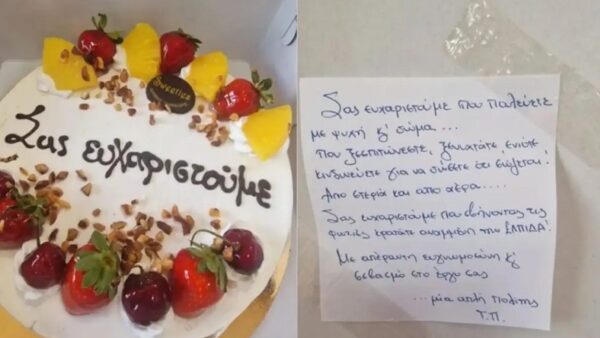 Sweeties
Σας ευχαριστούμε
Σας ευχαριστούμε που παλεύετε
με ψυχή κ' σώμα...
Που ξεσπιτώνεστε, ξενυχτάτε, ενίοτε
κινδυνεύετε για να σώσετε ότι σώζεται!
Απο στεριά και απο αέρα....
Σας ευχαριστούμε που σβήνοντας τις
φωτιές κρατάτε αναμμένη την ΕΛΠΙΔΑ!
Με απέραντη ευγνωμοσύνη κ'
σεβασμό στο έργο σας
...μία απλή πολίτης
Τ.Π.